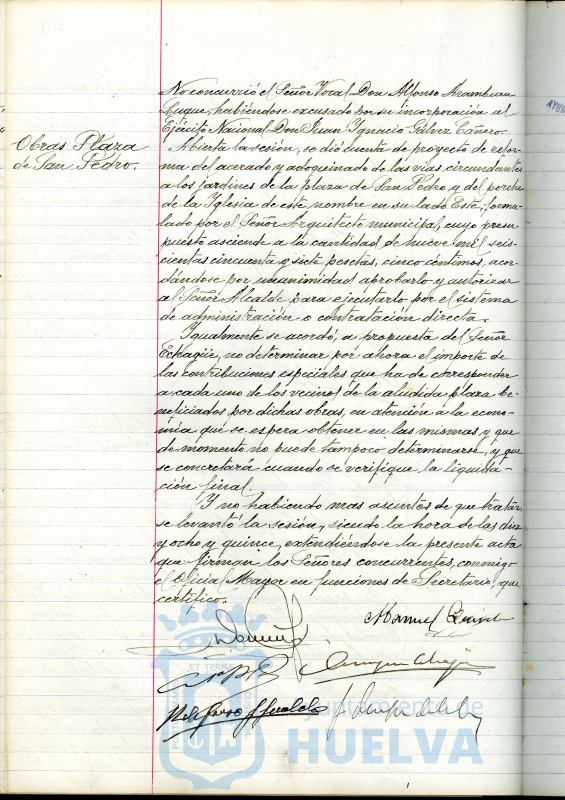 No concurrió el Señor Vocal Don Alfonso Aramburu
Luque, habiéndose excusado por su incorporación al
Ejército Nacional Don Juan Ignacio Gálvez Cañero.
Obras Plaza
de San Pedro.
Abierta la sesión, se dió cuenta de proyecto de refor-
ma del acerado y adoquinado de las vías circundantes
a los jardines de la plaza de San Pedro y del porche
de la Iglesia de este nombre en su lado Este, formu-
lado por el Señor Arquitecto municipal, cuyo presu-
puesto asciende a la cantidad de nueve mil seis-
cientas cincuenta y siete pesetas, cinco céntimos, acor-
dándose por unanimidad aprobarlo y autorizar
al Señor Alcalde para ejecutarlo por el sistema
de administración o contratación directa.
Igualmente se acordó, a propuesta del Señor
Echagüe, no determinar por ahora el importe de
las contribuciones especiales que ha de corresponder
a cada uno de los vecinos de la aludida plaza be-
neficiados por dichas obras, en atención a la econo-
mía que se espera obtener en las mismas y que
de momento no puede tampoco determinarse, y que
se concretará cuando se verifique la liquida-
ción final.
Y no habiendo mas asuntos de que tratar,
se levantó la sesión, siendo la hora de las diez
y ocho y quince, extendiéndose la presente acta
que firman los Señores concurrentes, conmigo
el Oficial Mayor en funciones de Secretario, que
certifico.
Manuel
ET TERRÆ
Ayuntamiento de
HUELVA